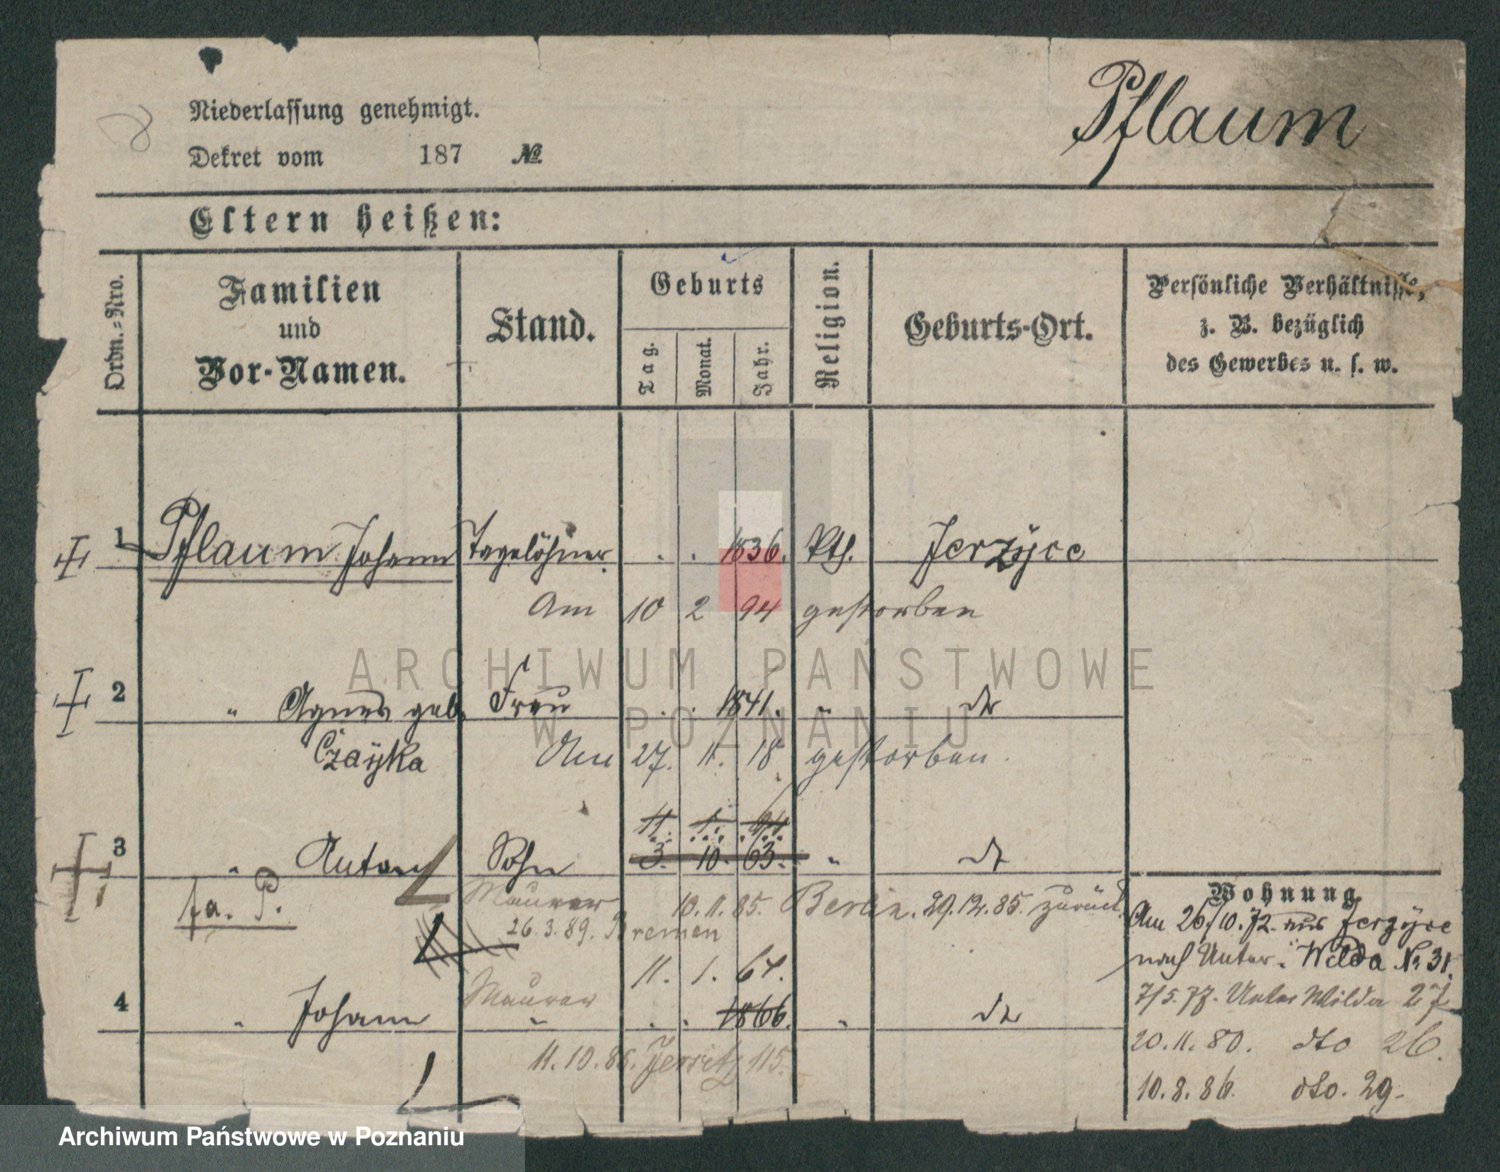 Niederlassung genehmigt.
Pflaum
Dekret vom 187 №
Eltern heißen:
Ordn.=Nro.
Familien und Vor-Namen.
Stand.
Geburts
Tag.
Monat.
Jahr.
Religion.
Geburts-Ort.
Persönliche Verhältnisse,
z. B. bezüglich
des Gewerbes u. s. w.
1 Pflaum Johann Tagelöhner . . 1836. Kth. Jerzÿce
Am 10 2 94 gestorben
2 " Agnes geb. Frau . . 1841. " do
Czaÿka Am 27. 11. 18 gestorben.
11. 1. 64
3 " Anton Sohn 3. 10. 63. " do
fa. P. Maurer 10. 11. 85. Berlin. 29.12.85. zurück.
26.3.89. Bremen
11. 1. 64.
4 " Johann Maurer " . . 1866. " do
11.10.86. Jersitz 115.
Wohnung
Am 26/10.72 aus Jerzÿce
nach Unter- Wilda № 31.
7/5.77. Unter Wilda 27
20.11.80. dto 26.
10.8.86. dto. 29.
ARCHIWUM PAŃSTWOWE
W POZNANIU
Archiwum Państwowe w Poznaniu